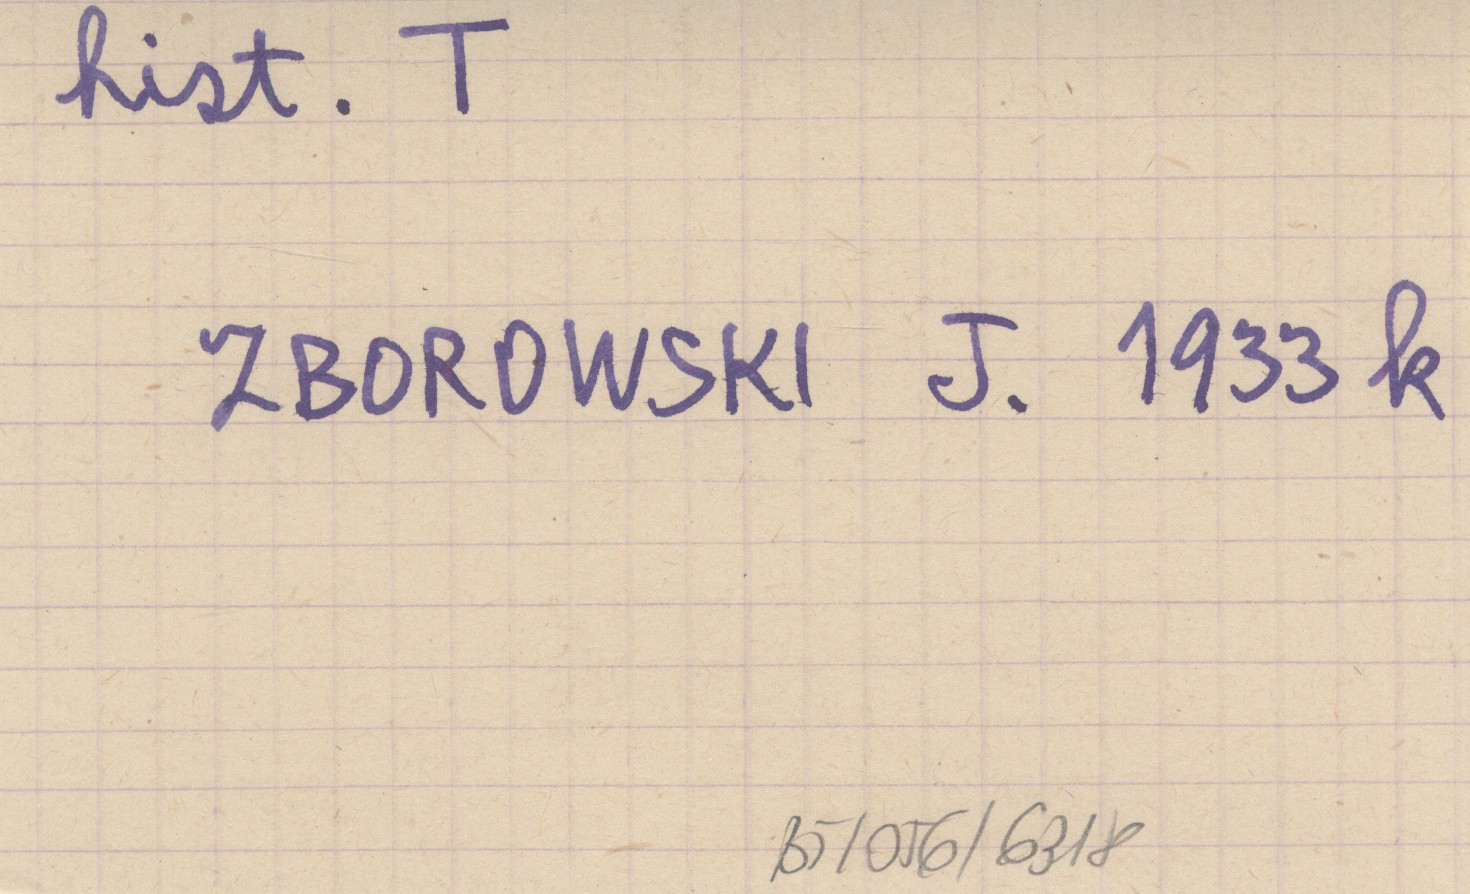 hist. T
ZBOROWSKI J. 1933 k
B5/056/6318